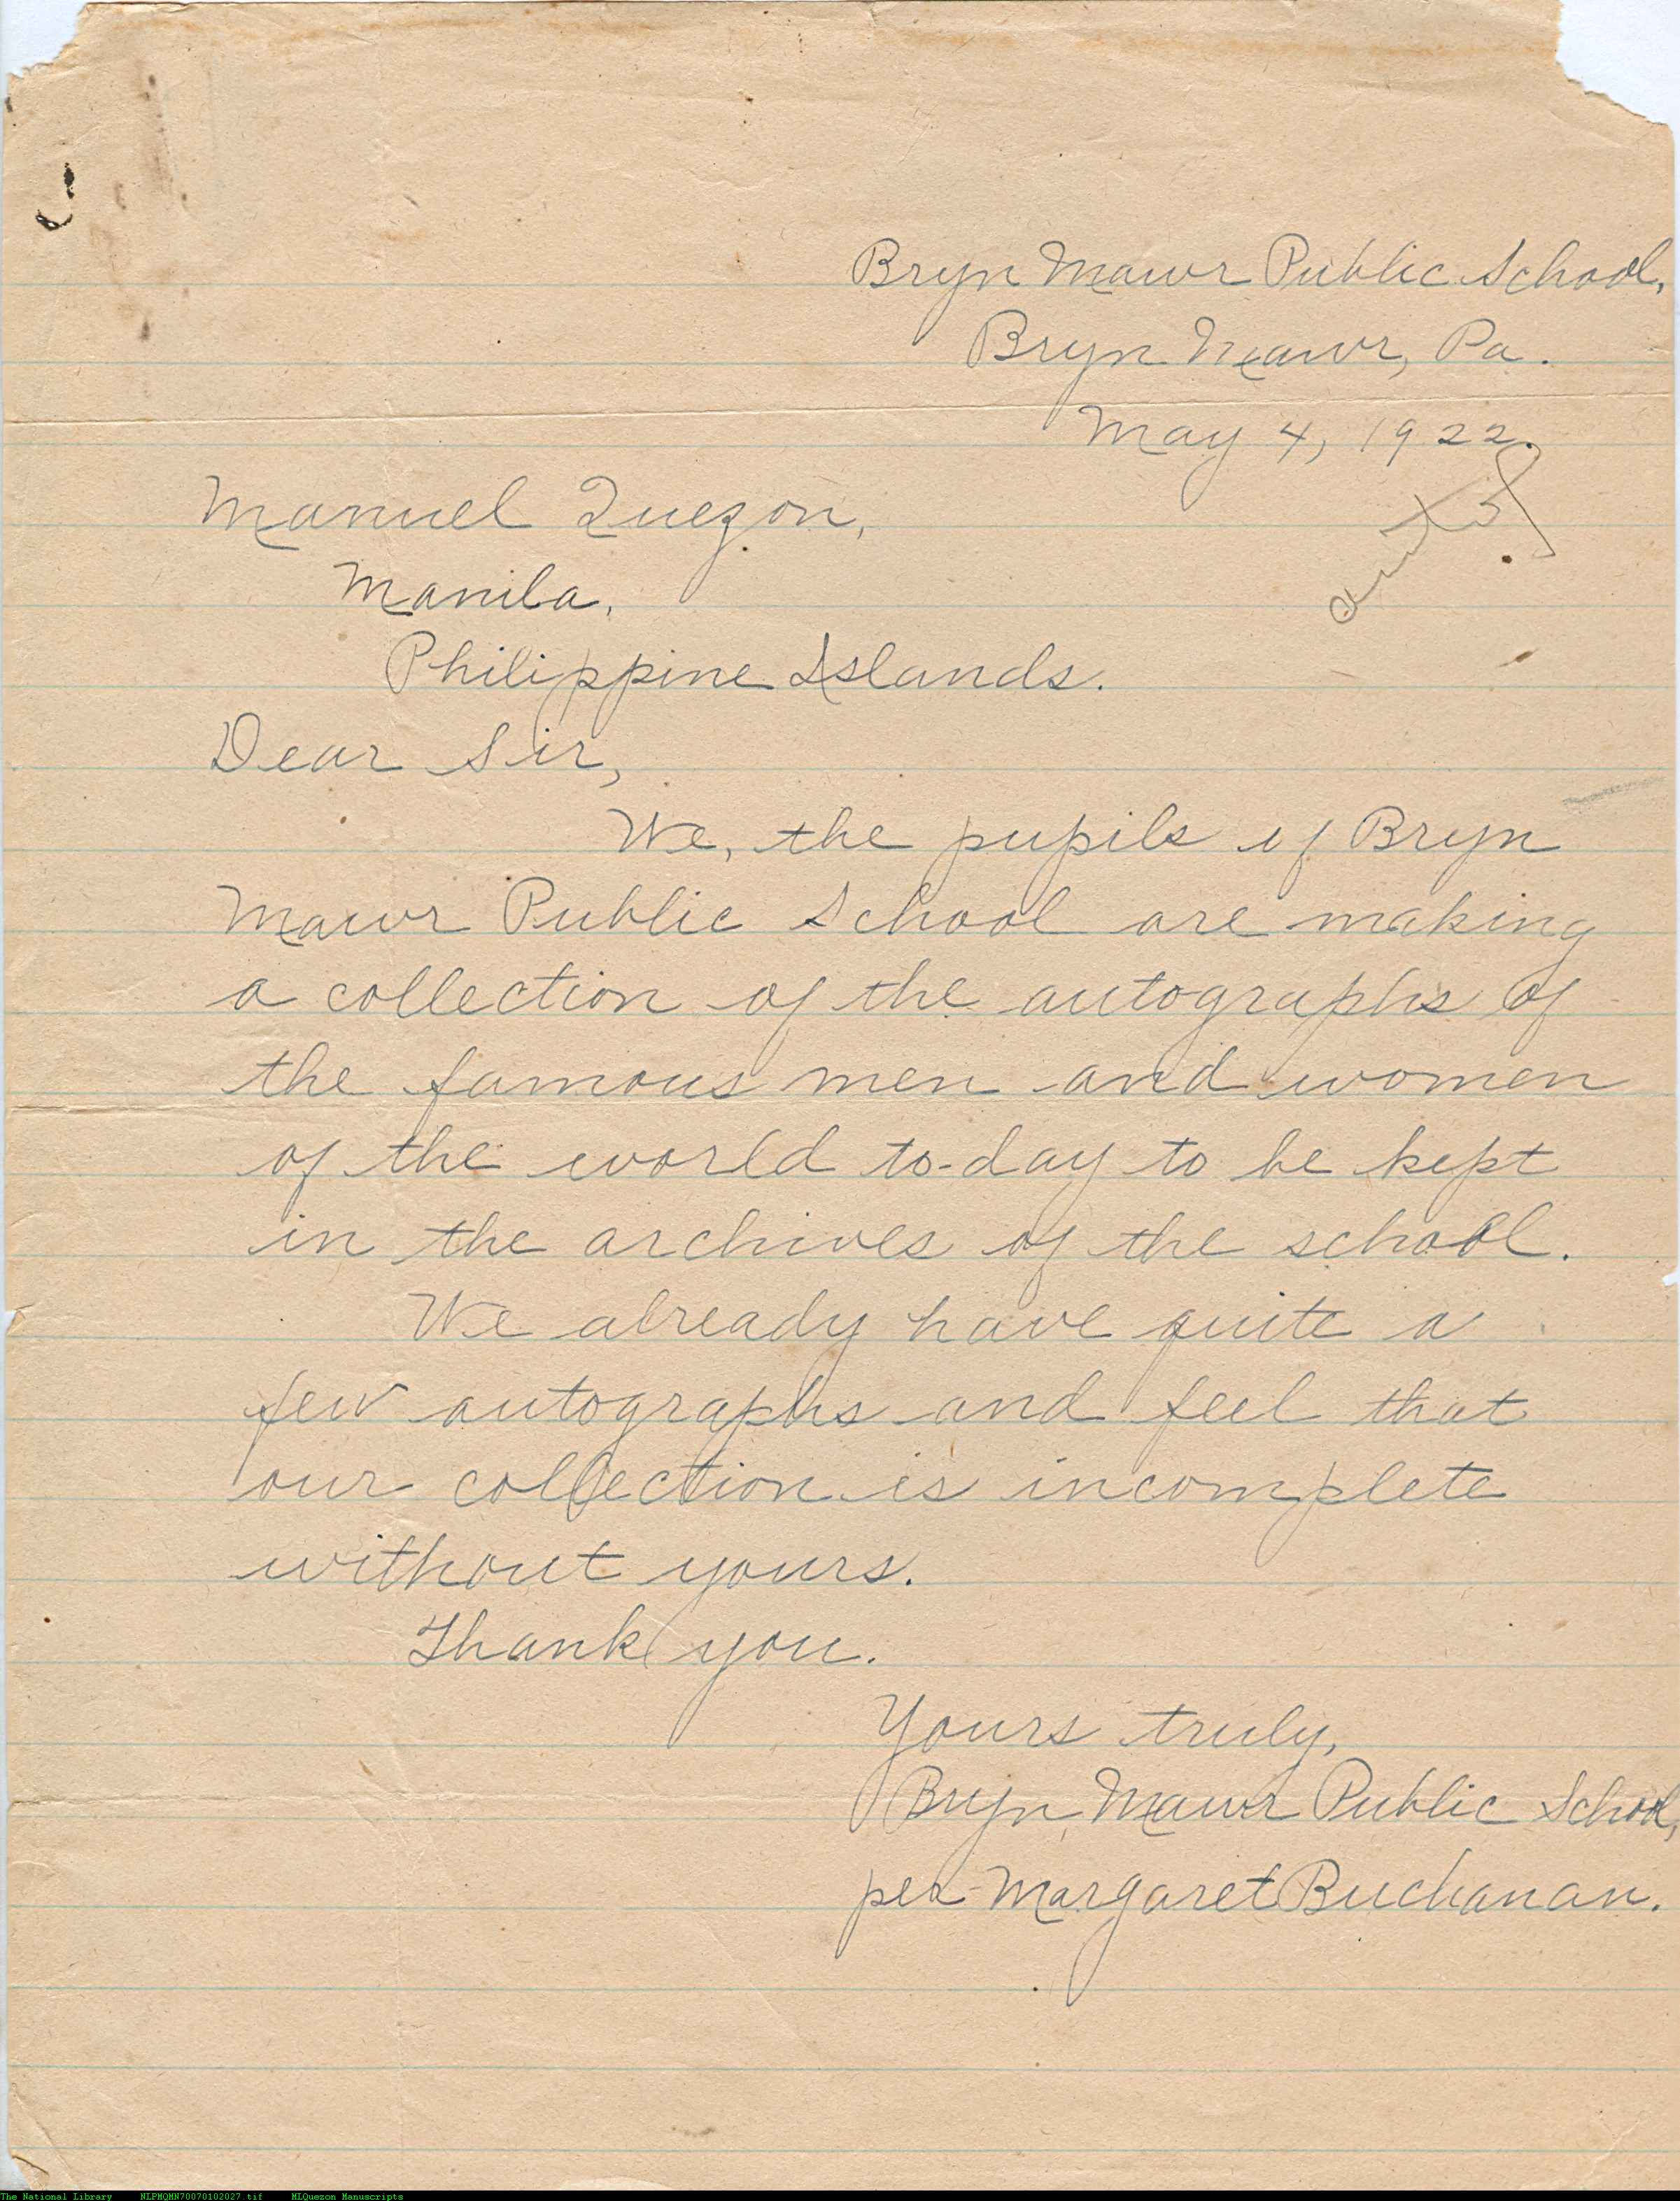 Bryn Mawr Public School,
Bryn Mawr, Pa.
May 4, 1922.
Manuel Quezon,
Manila,
Philippine Islands.
Dear Sir,
We, the pupils of Bryn
Mawr Public School are making
a collection of the autographs of
the famous men and women
of the world to-day to be kept
in the archives of the school.
We already have quite a
few autographs and feel that
our collection is incomplete
without yours.
Thank you.
Yours truly,
Bryn Mawr Public School,
per Margaret Buchanan.
The National Library NLPMQMN70070102027.tif MLQuezon Manuscripts